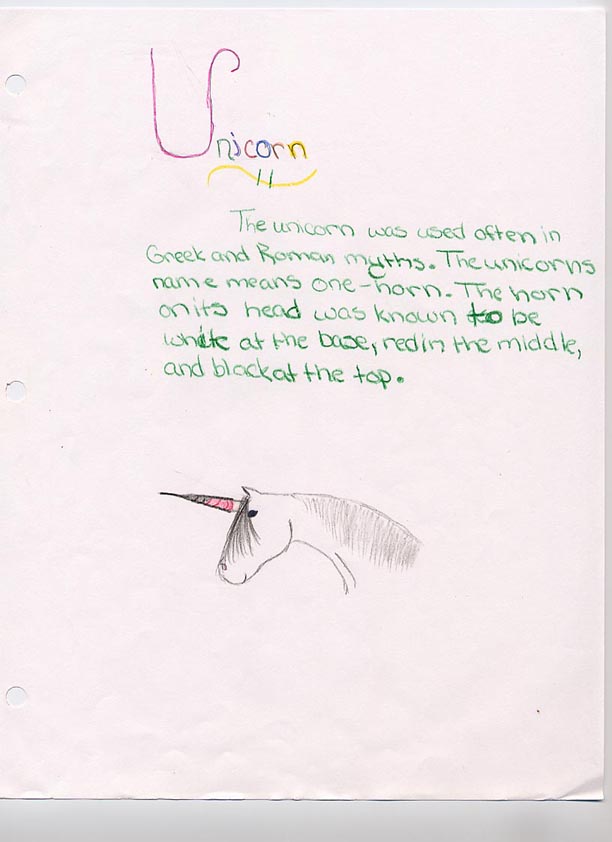 Unicorn
The unicorn was used often in
Greek and Roman myths. The unicorns
name means one-horn. The horn
on its head was known to be
white at the base, red in the middle,
and black at the top.